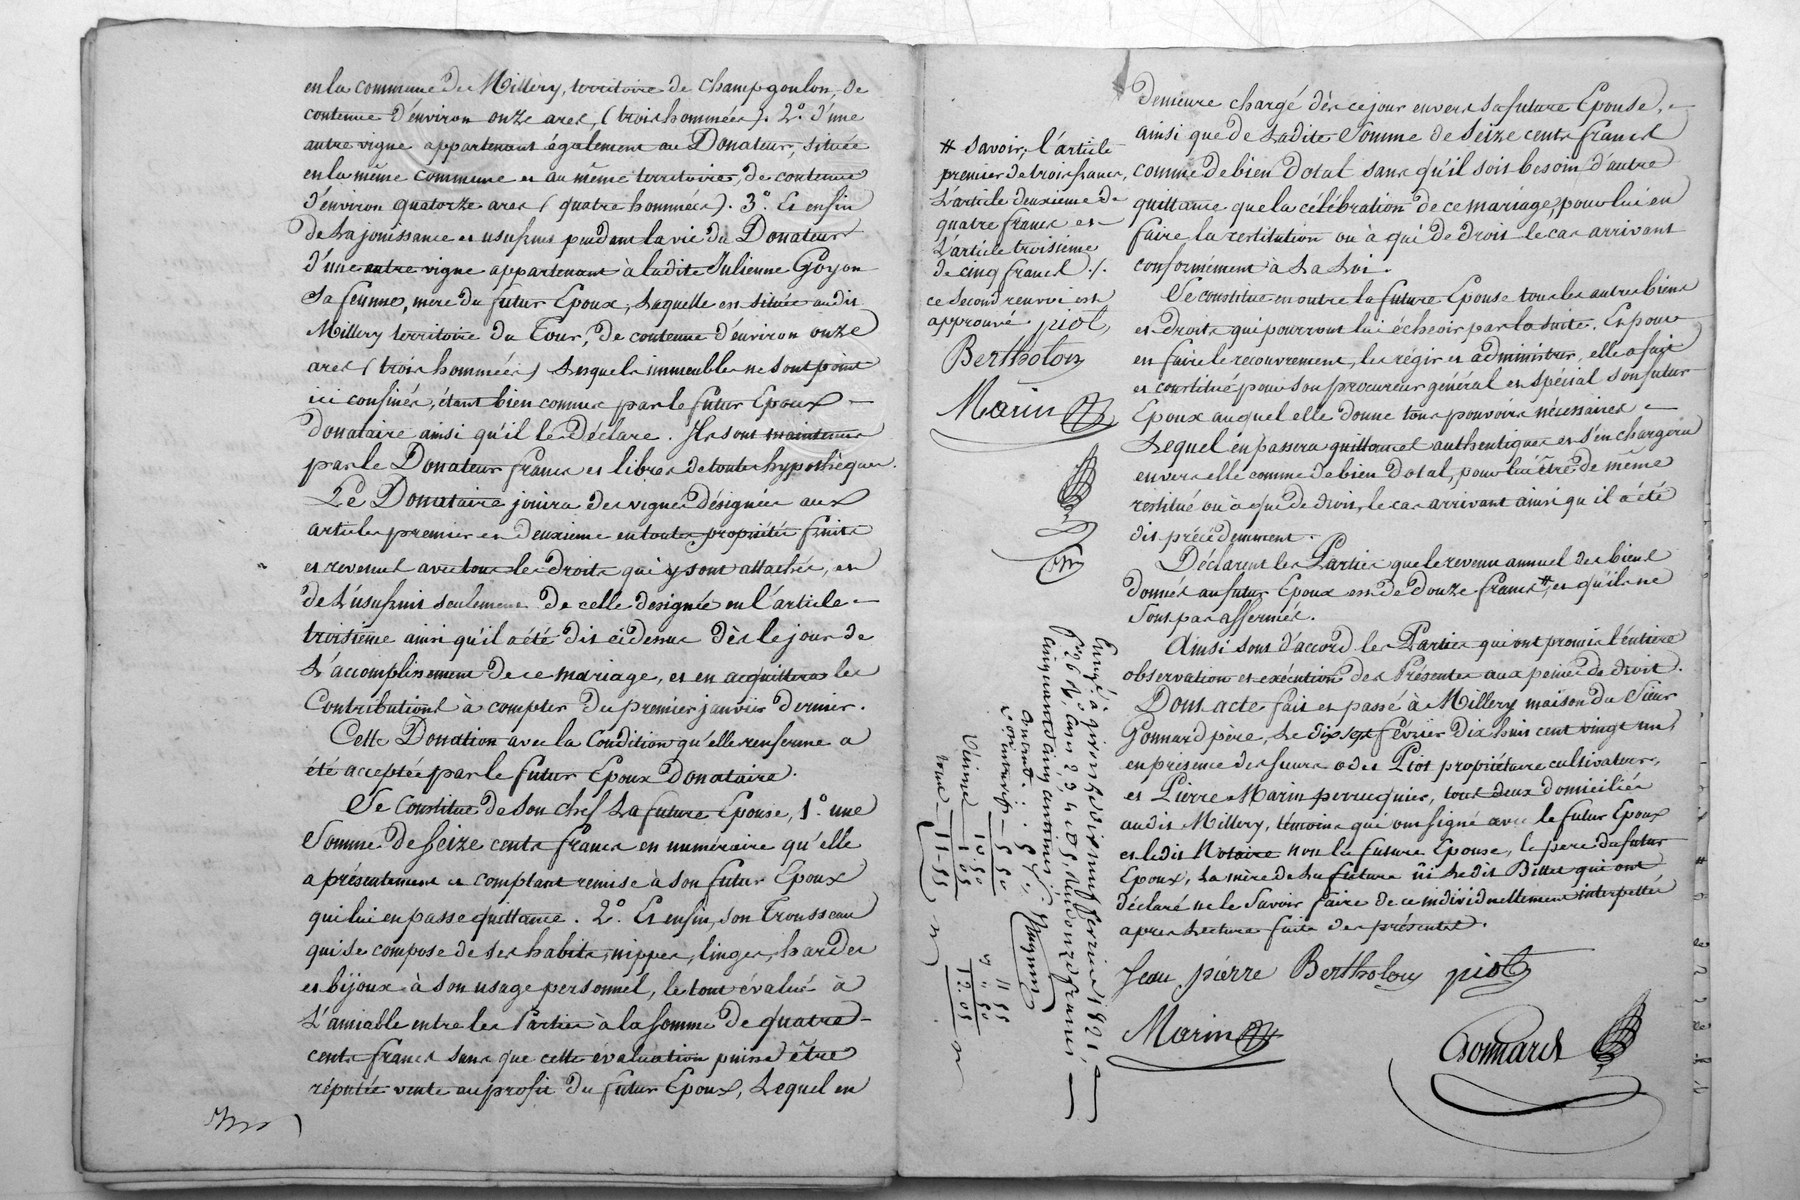 en la commune de Millery, territoire de champgoulon, de
contenue d'environ onze ares, (trois hommées). 2.° d'une
autre vigne appartenant également au Donateur, située
en la même commune et au même territoire, de contenue
d'environ quatorze ares (quatre hommées). 3.° Et enfin
de la jouissance et usufruit pendant la vie du Donateur
d'une autre vigne appartenant à ladite Julienne Goyon
sa femme, mere du futur Epoux, laquelle est située audit
Millery territoire du Tour, de contenue d'environ onze
ares (trois hommées) lesquels immeubles ne sont point
ici confinés, étant bien connus par le futur Epoux
donataire ainsi qu'il le déclare. Ils sont maintenus
par le Donateur francs et libres de toutes hypothèques.
Le Donataire jouira des vignes désignées aux
articles premier et deuxieme en toute propriété fruits
et revenus avec tous les droits qui y sont attachés, et
de l'usufruit seulement de celle designée en l'article
troisième ainsi qu'il a été dit ci dessus dès le jour de
l'accomplissement de ce mariage, et en acquittera les
Contributions à compter du premier janvier dernier.
Cette Donation avec la Condition qu'elle renferme a
été acceptée par le futur Epoux Donataire.
Se Constitue de son chef la future Epouse, 1.° une
Somme de seize cents francs en numéraire qu'elle
a présentement et comptant remise à son futur Epoux
qui lui en passe quittance. 2.° Et enfin, son Trousseau
qui se compose de ses habits, nippes, linges, hardes
et bijoux à son usage personnel, le tout évalué à
l'amiable entre les Parties à la somme de quatre
cents francs sans que cette évaluation puisse être
réputée vente au profit du futur Epoux, lequel en
# savoir, l'article
premier de trois francs,
l'article deuxieme de
quatre francs et
l'article troisieme
de cinq francs ./.
ce second renvoi est
approuvé piot
Bertholon
Marin
demeure chargé dès ce jour envers sa future Epouse,
ainsi que de ladite Somme de seize cents francs
comme de bien dotal sans qu'il soit besoin d'autre
quittance que la célébration de ce mariage, pour lui en
faire la restitution ou à qui de droit le cas arrivant
conformément à la Loi.
Se constitue en outre la future Epouse tous les autres biens
et droits qui pourront lui échcoir par la suite. Et pour
en faire le recouvrement, les régir et administrer, elle a fait
et constitué pour son procureur général et spécial son futur
Epoux auquel elle donne tous pouvoirs nécessaires
lequel en passera quittances authentiques et s'en chargera
envers elle comme de bien dotal, pour lui être de même
restitué ou à qui de droit, le cas arrivant ainsi qu'il a été
dit précédemment.
Déclarent les Parties que le revenu annuel des biens
donnés au futur Epoux est de douze francs # et qu'ils ne
sont pas affermés.
Ainsi sont d'accord les Parties qui ont promis l'entière
observation et exécution des Présentes aux peines de droit.
Dont acte fait et passé à Millery maison du Sieur
Gonnard père, le dix sept février dix huit cent vingt un,
en présence des sieurs Piot propriétaire cultivateur,
et Pierre Marin perruquier, tous deux domiciliés
audit Millery, témoins qui ont signé avec le futur Epoux
et ledit Notaire non la future Epouse, le pere du futur
Epoux, la mère de la future ni ledit Billet qui ont
déclaré ne le savoir faire de ce individuellement interpellés
après lecture faite des présentes.
Jean pierre Bertholon piot
Marin
Gonnard
Enregé à givors le dix neuf fevrier 1821,